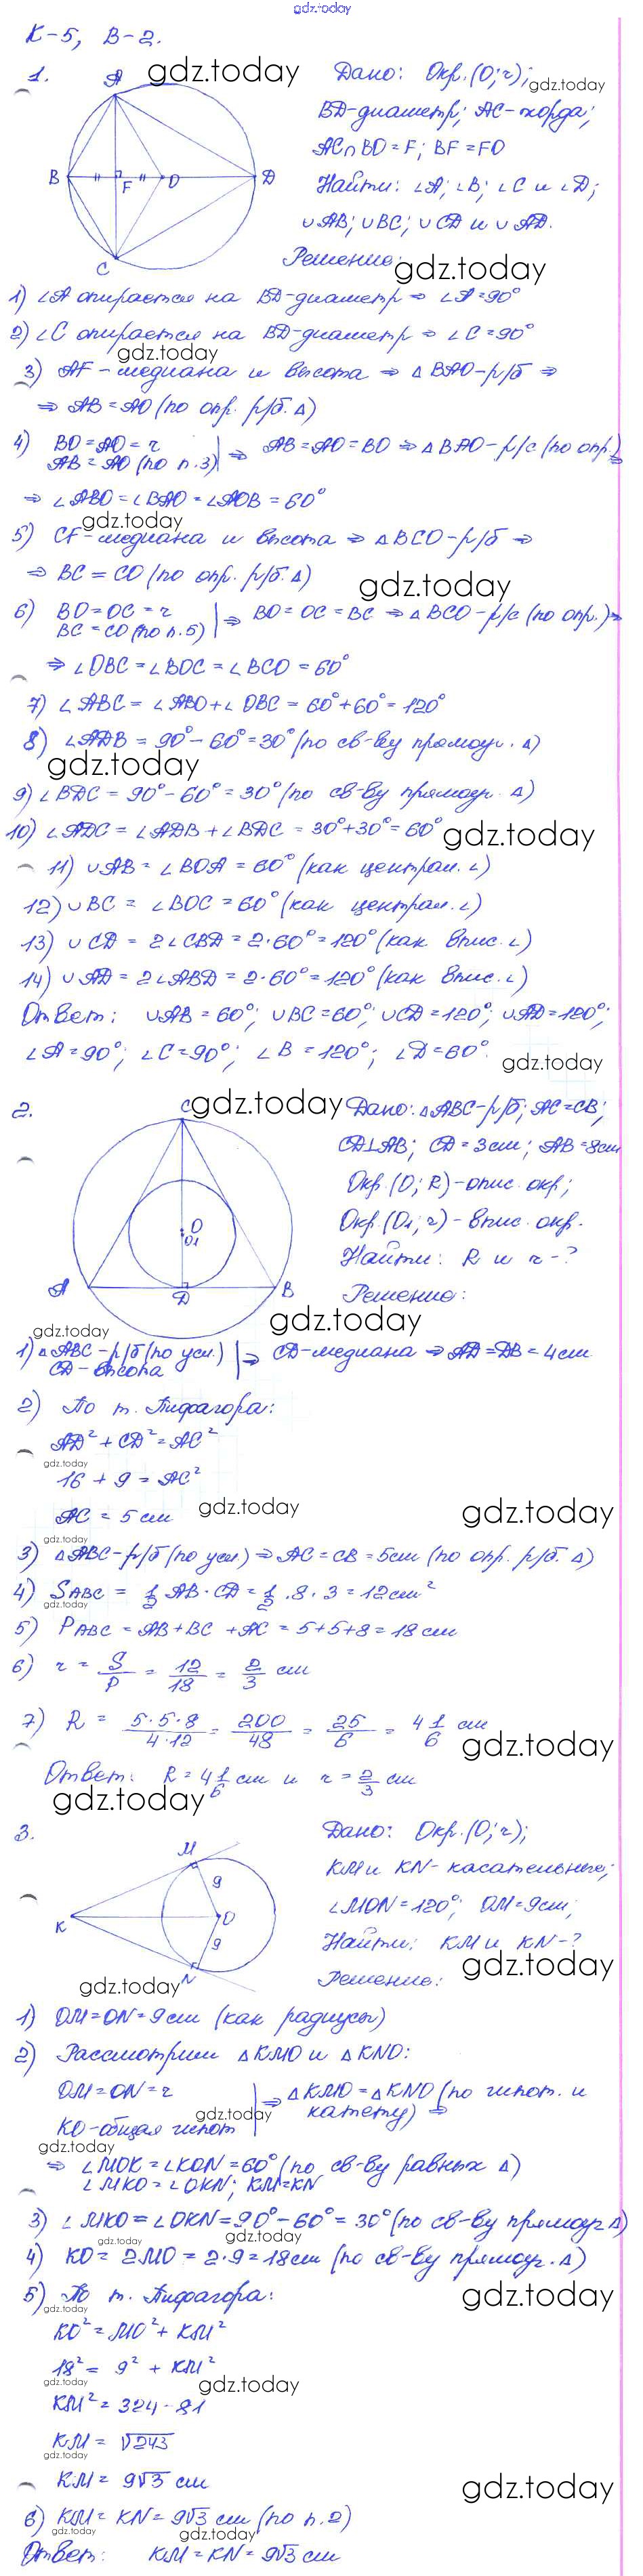 gdz.today
К-5, В-2.
1.
gdz.today
Дано: Окр.(O;r);
gdz.today
BD-диаметр; AC-хорда;
AC∩BD=F; BF=FO
Найти: ∠A; ∠B; ∠C и ∠D;
∪AB; ∪BC; ∪CD и ∪AD.
A
B
F
O
D
C
Решение:
gdz.today
1) ∠A опирается на BD-диаметр ⇒ ∠A=90°
2) ∠C опирается на BD-диаметр ⇒ ∠C=90°
gdz.today
3) AF-медиана и высота ⇒ △BAO-р/б ⇒
⇒ AB=AO (по опр. р/б. △)
4) BO=AO=r
AB=AO (по п.3) | ⇒ AB=AO=BO ⇒ △BAO-р/с (по опр.) ⇒
⇒ ∠ABO=∠BAO=∠AOB=60°
gdz.today
5) CF-медиана и высота ⇒ △BCO-р/б ⇒
⇒ BC=CO (по опр. р/б. △)
gdz.today
6) BO=OC=r
BC=CO (по п.5) | ⇒ BO=OC=BC ⇒ △BCO-р/с (по опр.) ⇒
⇒ ∠OBC=∠BOC=∠BCO=60°
7) ∠ABC=∠ABO+∠OBC=60°+60°=120°
8) ∠ADB=90°-60°=30° (по св-ву прямоуг. △)
gdz.today
9) ∠BDC=90°-60°=30° (по св-ву прямоуг. △)
10) ∠ADC=∠ADB+∠BDC=30°+30°=60°
gdz.today
11) ∪AB=∠BOA=60° (как централ. ∠)
12) ∪BC=∠BOC=60° (как централ. ∠)
13) ∪CD=2∠CBD=2·60°=120° (как впис. ∠)
14) ∪AD=2∠ABD=2·60°=120° (как впис. ∠)
Ответ: ∪AB=60°; ∪BC=60°; ∪CD=120°; ∪AD=120°;
∠A=90°; ∠C=90°; ∠B=120°; ∠D=60°.
gdz.today
2.
C
gdz.today
Дано: △ABC-р/б; AC=CB;
CD⊥AB; CD=3см; AB=8см
Окр.(O;R)-опис. окр;
Окр.(O1;r)-впис. окр.
Найти: R и r-?
O
O1
A
D
B
Решение:
gdz.today
gdz.today
1) △ABC-р/б (по усл.)
CD-высота | ⇒ CD-медиана ⇒ AD=DB=4см
2) По т. Пифагора:
AD²+CD²=AC²
gdz.today
16+9=AC²
AC=5см
gdz.today
gdz.today
gdz.today
3) △ABC-р/б (по усл.) ⇒ AC=CB=5см (по опр. р/б. △)
4) SABC=1/2 AB·CD=1/2·8·3=12см²
gdz.today
5) PABC=AB+BC+AC=5+5+8=18см
6) r=S/P=12/18=2/3 см
7) R=5·5·8/4·12=200/48=25/6=4 1/6 см
gdz.today
Ответ: R=4 1/6 см и r=2/3 см
gdz.today
3.
Дано: Окр.(O;r);
KM и KN-касательные;
∠MON=120°; OM=9см;
Найти: KM и KN-?
gdz.today
M
9
K
O
9
N
gdz.today
Решение:
1) OM=ON=9см (как радиусы)
2) Рассмотрим △KMO и △KNO:
OM=ON=r
KO-общая гипот | ⇒ △KMO=△KNO (по гипот. и
катету) ⇒
gdz.today
gdz.today
⇒ ∠MOK=∠KON=60° (по св-ву равных △)
∠MKO=∠OKN; KM=KN
3) ∠MKO=∠OKN=90°-60°=30° (по св-ву прямоуг △)
gdz.today
gdz.today
4) KO=2MO=2·9=18см (по св-ву прямоуг. △)
5) По т. Пифагора:
gdz.today
gdz.today
KO²=MO²+KM²
18²=9²+KM²
gdz.today
gdz.today
KM²=324-81
KM=√243
gdz.today
KM=9√3 см
gdz.today
6) KM=KN=9√3 см (по п.2)
gdz.today
gdz.today
Ответ: KM=KN=9√3 см